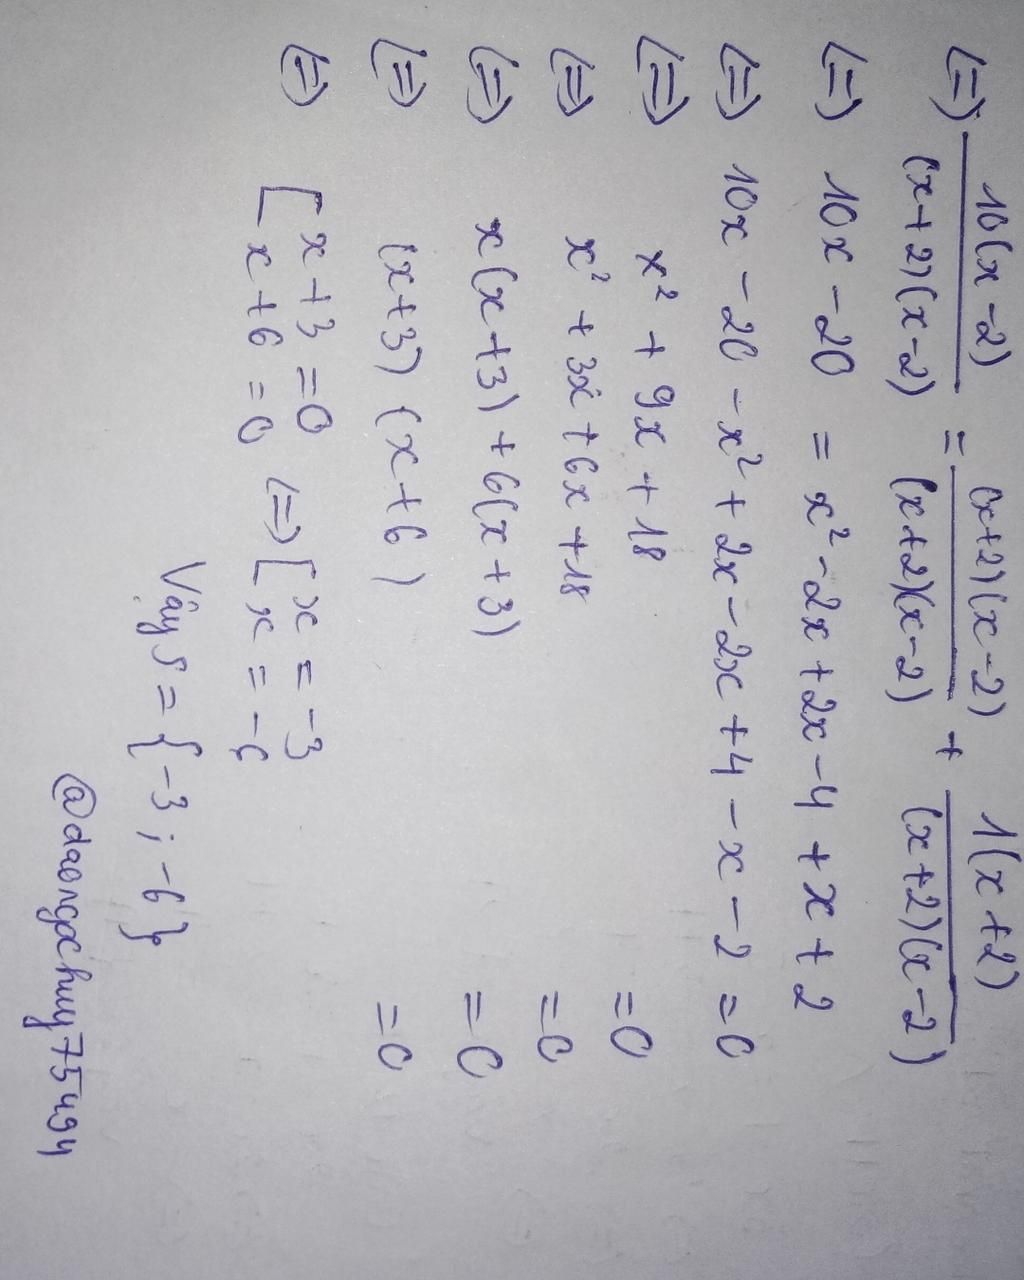 (=) 10(x-2)/(x+2)(x-2) = (x+2)(x-2)/(x+2)(x-2) + 1(x+2)/(x+2)(x-2)
(=) 10x - 20 = x² - 2x + 2x - 4 + x + 2
(=) 10x - 20 - x² + 2x - 2x + 4 - x - 2 = 0
(=) x² + 9x + 18 = 0
(=) x² + 3x + 6x + 18 = 0
(=) x(x+3) + 6(x+3) = 0
(=) (x+3)(x+6) = 0
(=) [ x+3 = 0 (=) [ x = -3
x+6 = 0 x = -6
Vậy S = {-3; -6}
@daongochuy75494